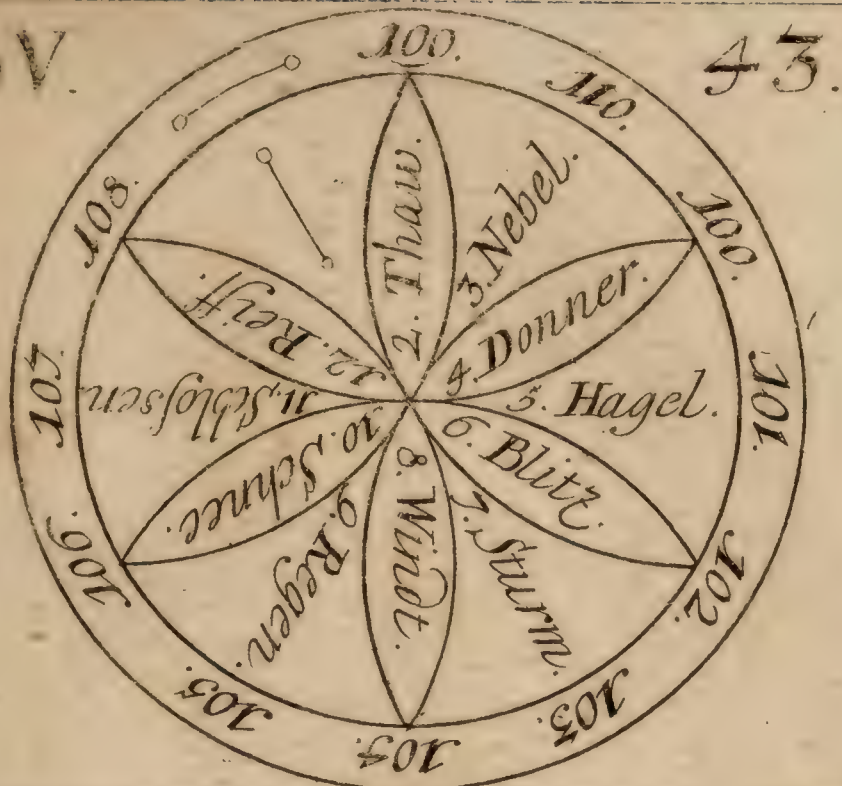 V.
43.
100.
110.
100.
101.
102.
103.
103.
105.
106.
107.
108.
2. Thaw.
3. Nebel.
4. Donner.
5. Hagel.
6. Blitz.
7. Sturm.
8. Windt.
9. Regen.
10. Schnee.
11. Schloſsen.
12. Reiff.